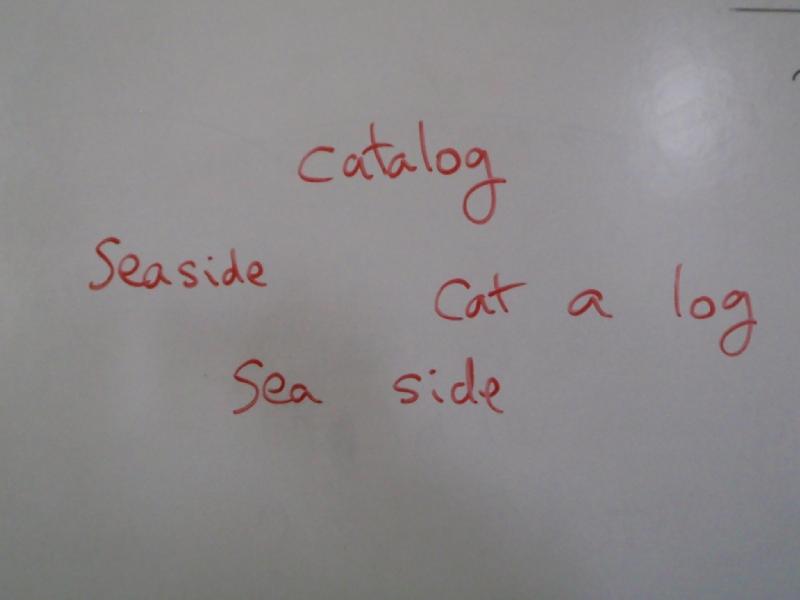 catalog
Seaside
Cat a log
Sea side